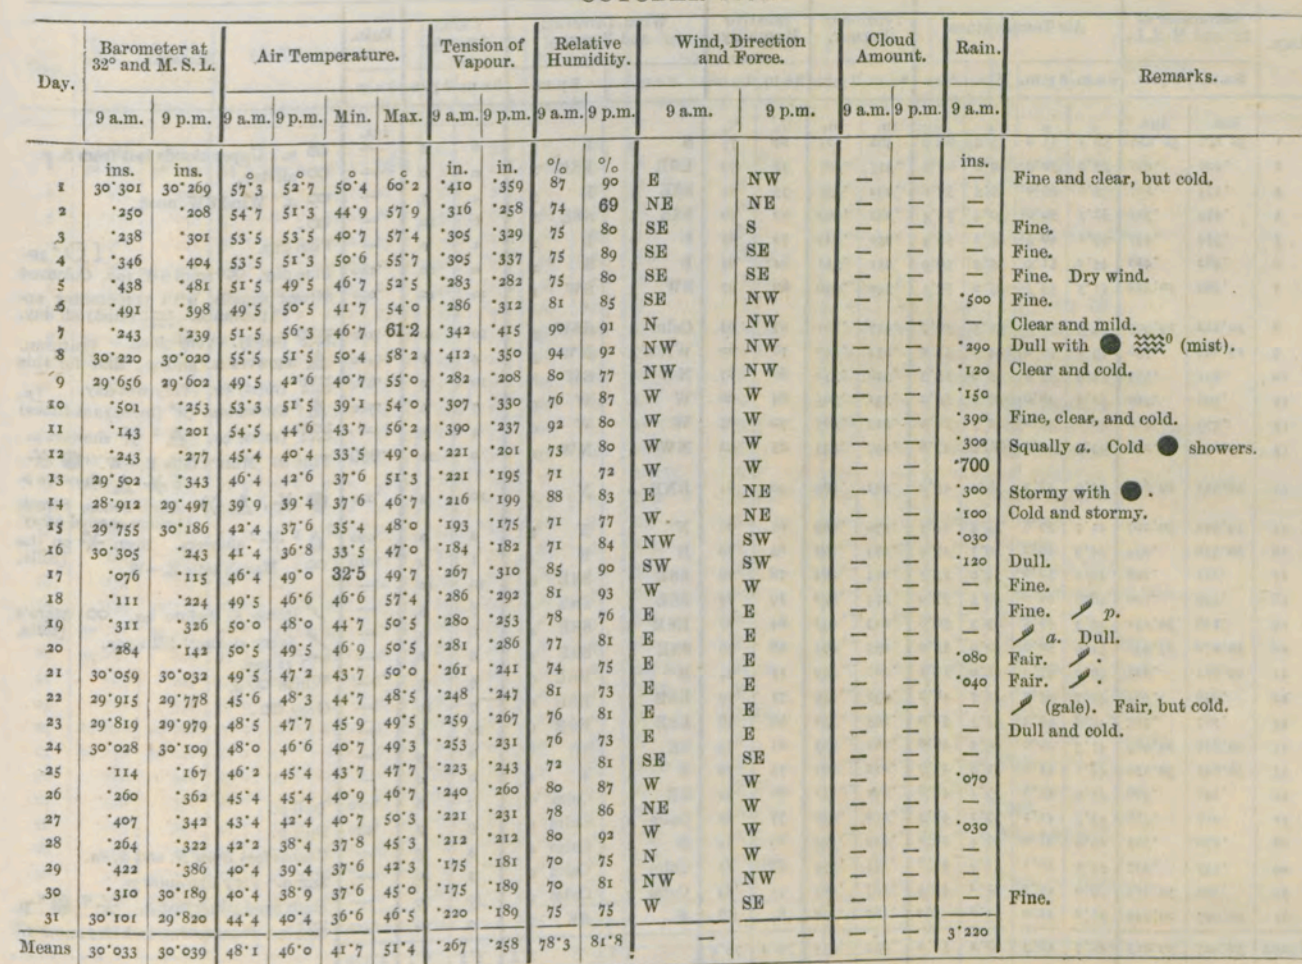 Day. Barometer at 32° and M. S. L. Air Temperature. Tension of Vapour. Relative Humidity. Wind, Direction and Force. Cloud Amount. Rain. Remarks.
9 a.m. 9 p.m. 9 a.m. 9 p.m. Min. Max. 9 a.m. 9 p.m. 9 a.m. 9 p.m. 9 a.m. 9 p.m. 9 a.m. 9 p.m. 9 a.m.
ins. ins. ° ° ° ° in. in. % % ins.
1 30·301 30·269 57·3 52·7 50·4 60·2 ·410 ·359 87 90 E NW — — — Fine and clear, but cold.
2 ·250 ·208 54·7 51·3 44·9 57·9 ·316 ·258 74 69 NE NE — — —
3 ·238 ·301 53·5 53·5 40·7 57·4 ·305 ·329 75 80 SE S — — — Fine.
4 ·346 ·404 53·5 51·3 50·6 55·7 ·305 ·337 75 89 SE SE — — — Fine.
5 ·438 ·481 51·5 49·5 46·7 52·5 ·283 ·282 75 80 SE SE — — — Fine. Dry wind.
6 ·491 ·398 49·5 50·5 41·7 54·0 ·286 ·312 81 85 SE NW — — ·500 Fine.
7 ·243 ·239 51·5 56·3 46·7 61·2 ·342 ·415 90 91 N NW — — — Clear and mild.
8 30·220 30·020 55·5 51·5 50·4 58·2 ·412 ·350 94 92 NW NW — — ·290 Dull with ● 0 (mist).
9 29·656 29·602 49·5 42·6 40·7 55·0 ·282 ·208 80 77 NW NW — — ·120 Clear and cold.
10 ·501 ·253 53·3 51·5 39·1 54·0 ·307 ·330 76 87 W W — — ·150
11 ·143 ·201 54·5 44·6 43·7 56·2 ·390 ·237 92 80 W W — — ·390 Fine, clear, and cold.
12 ·243 ·277 45·4 40·4 33·5 49·0 ·221 ·201 73 80 W W — — ·300 Squally a. Cold ● showers.
13 29·502 ·343 46·4 42·6 37·6 51·3 ·221 ·195 71 72 W W — — ·700
14 28·912 29·497 39·9 39·4 37·6 46·7 ·216 ·199 88 83 E NE — — ·300 Stormy with ●.
15 29·755 30·186 42·4 37·6 35·4 48·0 ·193 ·175 71 77 W NE — — ·100 Cold and stormy.
16 30·305 ·243 41·4 36·8 33·5 47·0 ·184 ·182 71 84 NW SW — — ·030
17 ·076 ·115 46·4 49·0 32·5 49·7 ·267 ·310 85 90 SW SW — — ·120 Dull.
18 ·111 ·224 49·5 46·6 46·6 57·4 ·286 ·292 81 93 W W — — — Fine.
19 ·311 ·326 50·0 48·0 44·7 50·5 ·280 ·253 78 76 E E — — — Fine. p.
20 ·284 ·142 50·5 49·5 46·9 50·5 ·281 ·286 77 81 E E — — — a. Dull.
21 30·059 30·032 49·5 47·2 43·7 50·0 ·261 ·241 74 75 E E — — ·080 Fair. .
22 29·915 29·778 45·6 48·3 44·7 48·5 ·248 ·247 81 73 E E — — ·040 Fair. .
23 29·819 29·979 48·5 47·7 45·9 49·5 ·259 ·267 76 81 E E — — — (gale). Fair, but cold.
24 30·028 30·109 48·0 46·6 40·7 49·3 ·253 ·231 76 73 E E — — — Dull and cold.
25 ·114 ·167 46·2 45·4 43·7 47·7 ·223 ·243 72 81 SE SE — — —
26 ·260 ·362 45·4 45·4 40·9 46·7 ·240 ·260 80 87 W W — — ·070
27 ·407 ·342 43·4 42·4 40·7 50·3 ·221 ·231 78 86 NE W — — —
28 ·264 ·322 42·2 38·4 37·8 45·3 ·212 ·212 80 92 W W — — ·030
29 ·422 ·386 40·4 39·4 37·6 42·3 ·175 ·181 70 75 N W — — —
30 ·310 30·189 40·4 38·0 37·6 45·0 ·175 ·189 70 81 NW NW — — —
31 30·101 29·820 44·4 40·4 36·6 46·5 ·220 ·189 75 75 W SE — — — Fine.
Means 30·033 30·039 48·1 46·0 41·7 51·4 ·267 ·258 78·3 81·8 — — — — 3·220